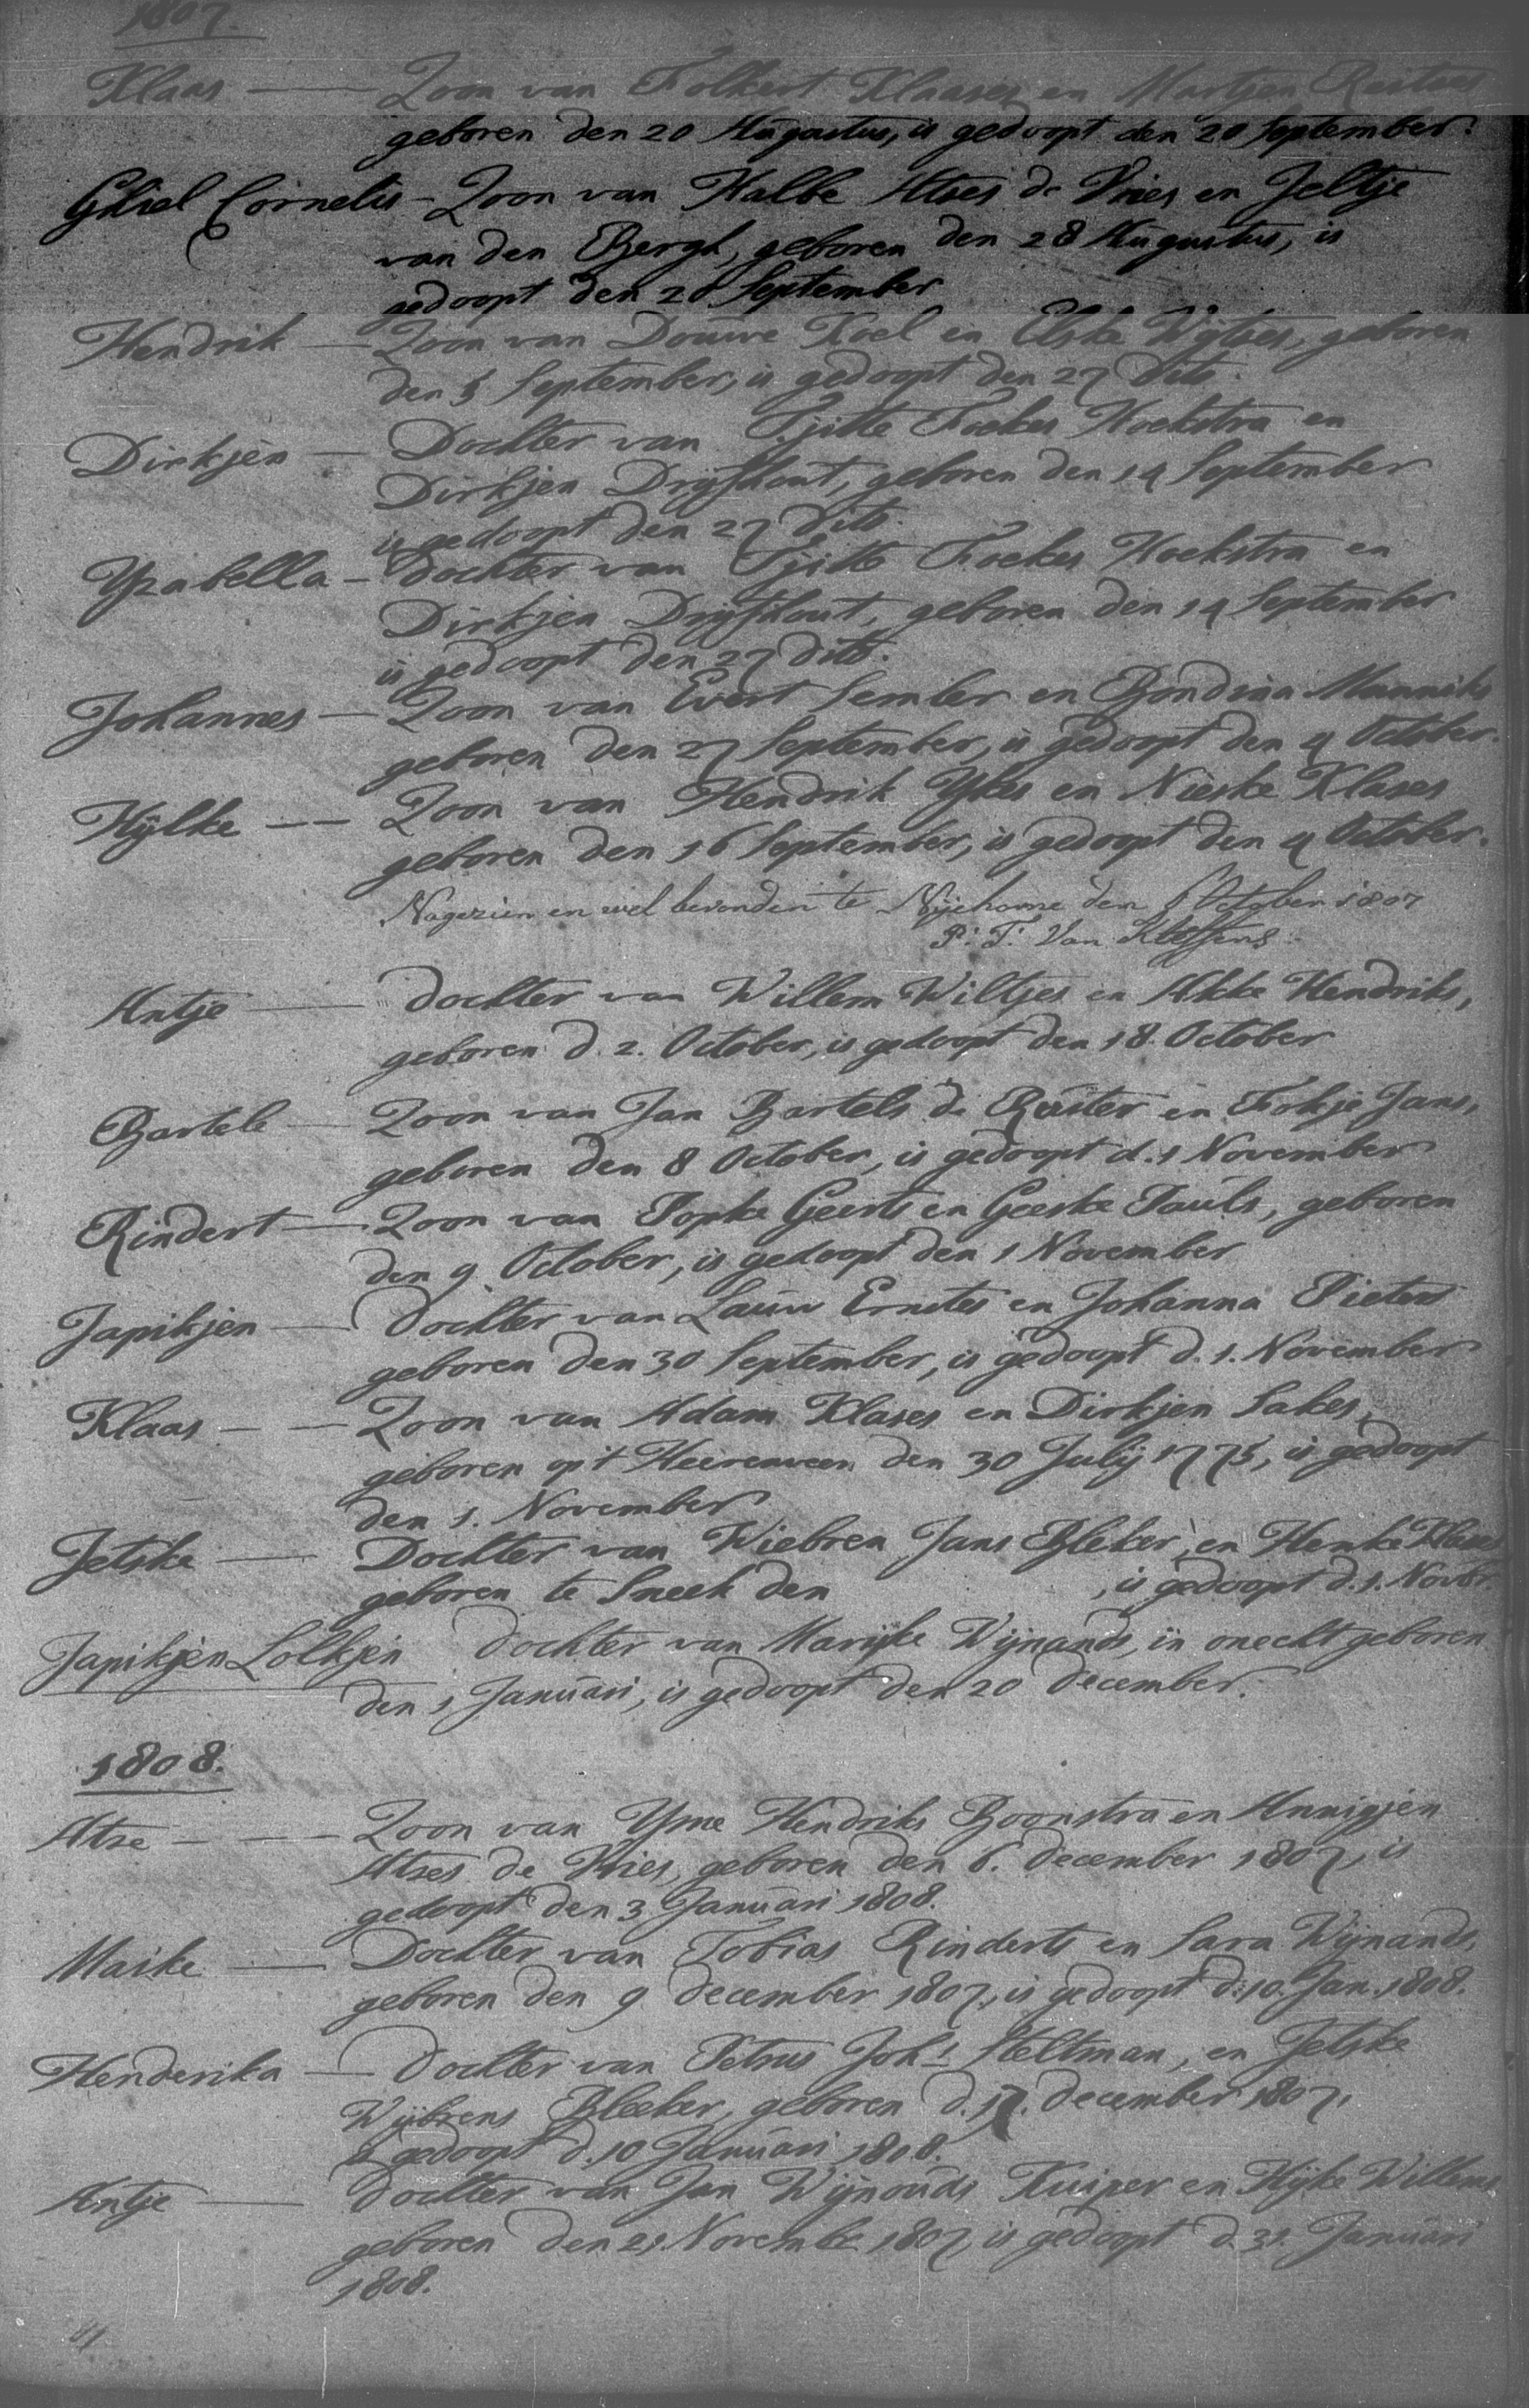 1807.
Klaas — Zoon van Folkert Klaases en Martjen
geboren den 20 Augustus, is gedoopt den 20 September.
Ghiel Cornelis - Zoon van Halbe Atzes de Vries en Jeltje
van den Bergh, geboren den 28 Augustus, is
gedoopt den 20 September
Hendrik — Zoon van Douwe Koel en Elske Wijtses, geboren
den 5 September, is gedoopt den 27 dito.
Dirkjen — Dochter van Tjitte Foekes Hoekstra en
Dirkjen Drijfhout, geboren den 14 September
is gedoopt den 27 dito.
Yzabella - Dochter van Tjitte Foekes Hoekstra en
Dirkjen Drijfhout, geboren den 14 September
is gedoopt den 27 dito.
Johannes — Zoon van Evert Semler en Bondina Manniks
geboren den 27 September, is gedoopt den 4 October.
Hijlke — Zoon van Hendrik Ykes en Nieske Klases
geboren den 16 September, is gedoopt den 4 October.
Nagezien en wel bevonden te Nijehorne den 6 October 1807
P: T: Van
Antje — Dochter van Willem Wiltjes en Akke Hendriks,
geboren d. 2. October, is gedoopt den 18. October
Bartele — Zoon van Jan Bartels de Ruiter en Fokje Jans,
geboren den 8 October, is gedoopt d. 1 November
Rindert — Zoon van Popke Geerts en Geeske Pauls, geboren
den 9 October, is gedoopt den 1 November
Japikjen — Dochter van Lauw Ernstes en Johanna Pieters
geboren den 30 September, is gedoopt d. 1. November
Klaas — Zoon van Adam Klases en Dirkjen Sakes,
geboren op 't Heerenveen den 30 Julij 1775, is gedoopt
den 1. November
Jetske — Dochter van Wiebren Jans Bleker, en Henke Klases
geboren te Sneek den , is gedoopt d. 1. Novbr.
Japikjen Lolkjen Dochter van Marijke Wijnands, in onecht geboren
den 1 Januari, is gedoopt den 20 December.
1808.
Atze — Zoon van Yme Hendriks Boonstra en Annigjen
Atzes de Vries, geboren den 6. December 1807, is
gedoopt den 3 Januari 1808.
Maike — Dochter van Tobias Rinderts en Sara Wijnands,
geboren den 9 December 1807, is gedoopt d: 10. Jan. 1808.
Henderika — Dochter van Petrus Joh:s Steltman, en Jetske
Wijbrens Bleeker, geboren d. 17. December 1807,
is gedoopt d. 10 Januari 1808.
Antje — Dochter van Jan Wijnouds Kuiper en Hijke Willems
geboren den 21. Novembr 1807, is gedoopt d. 31. Januari
1808.